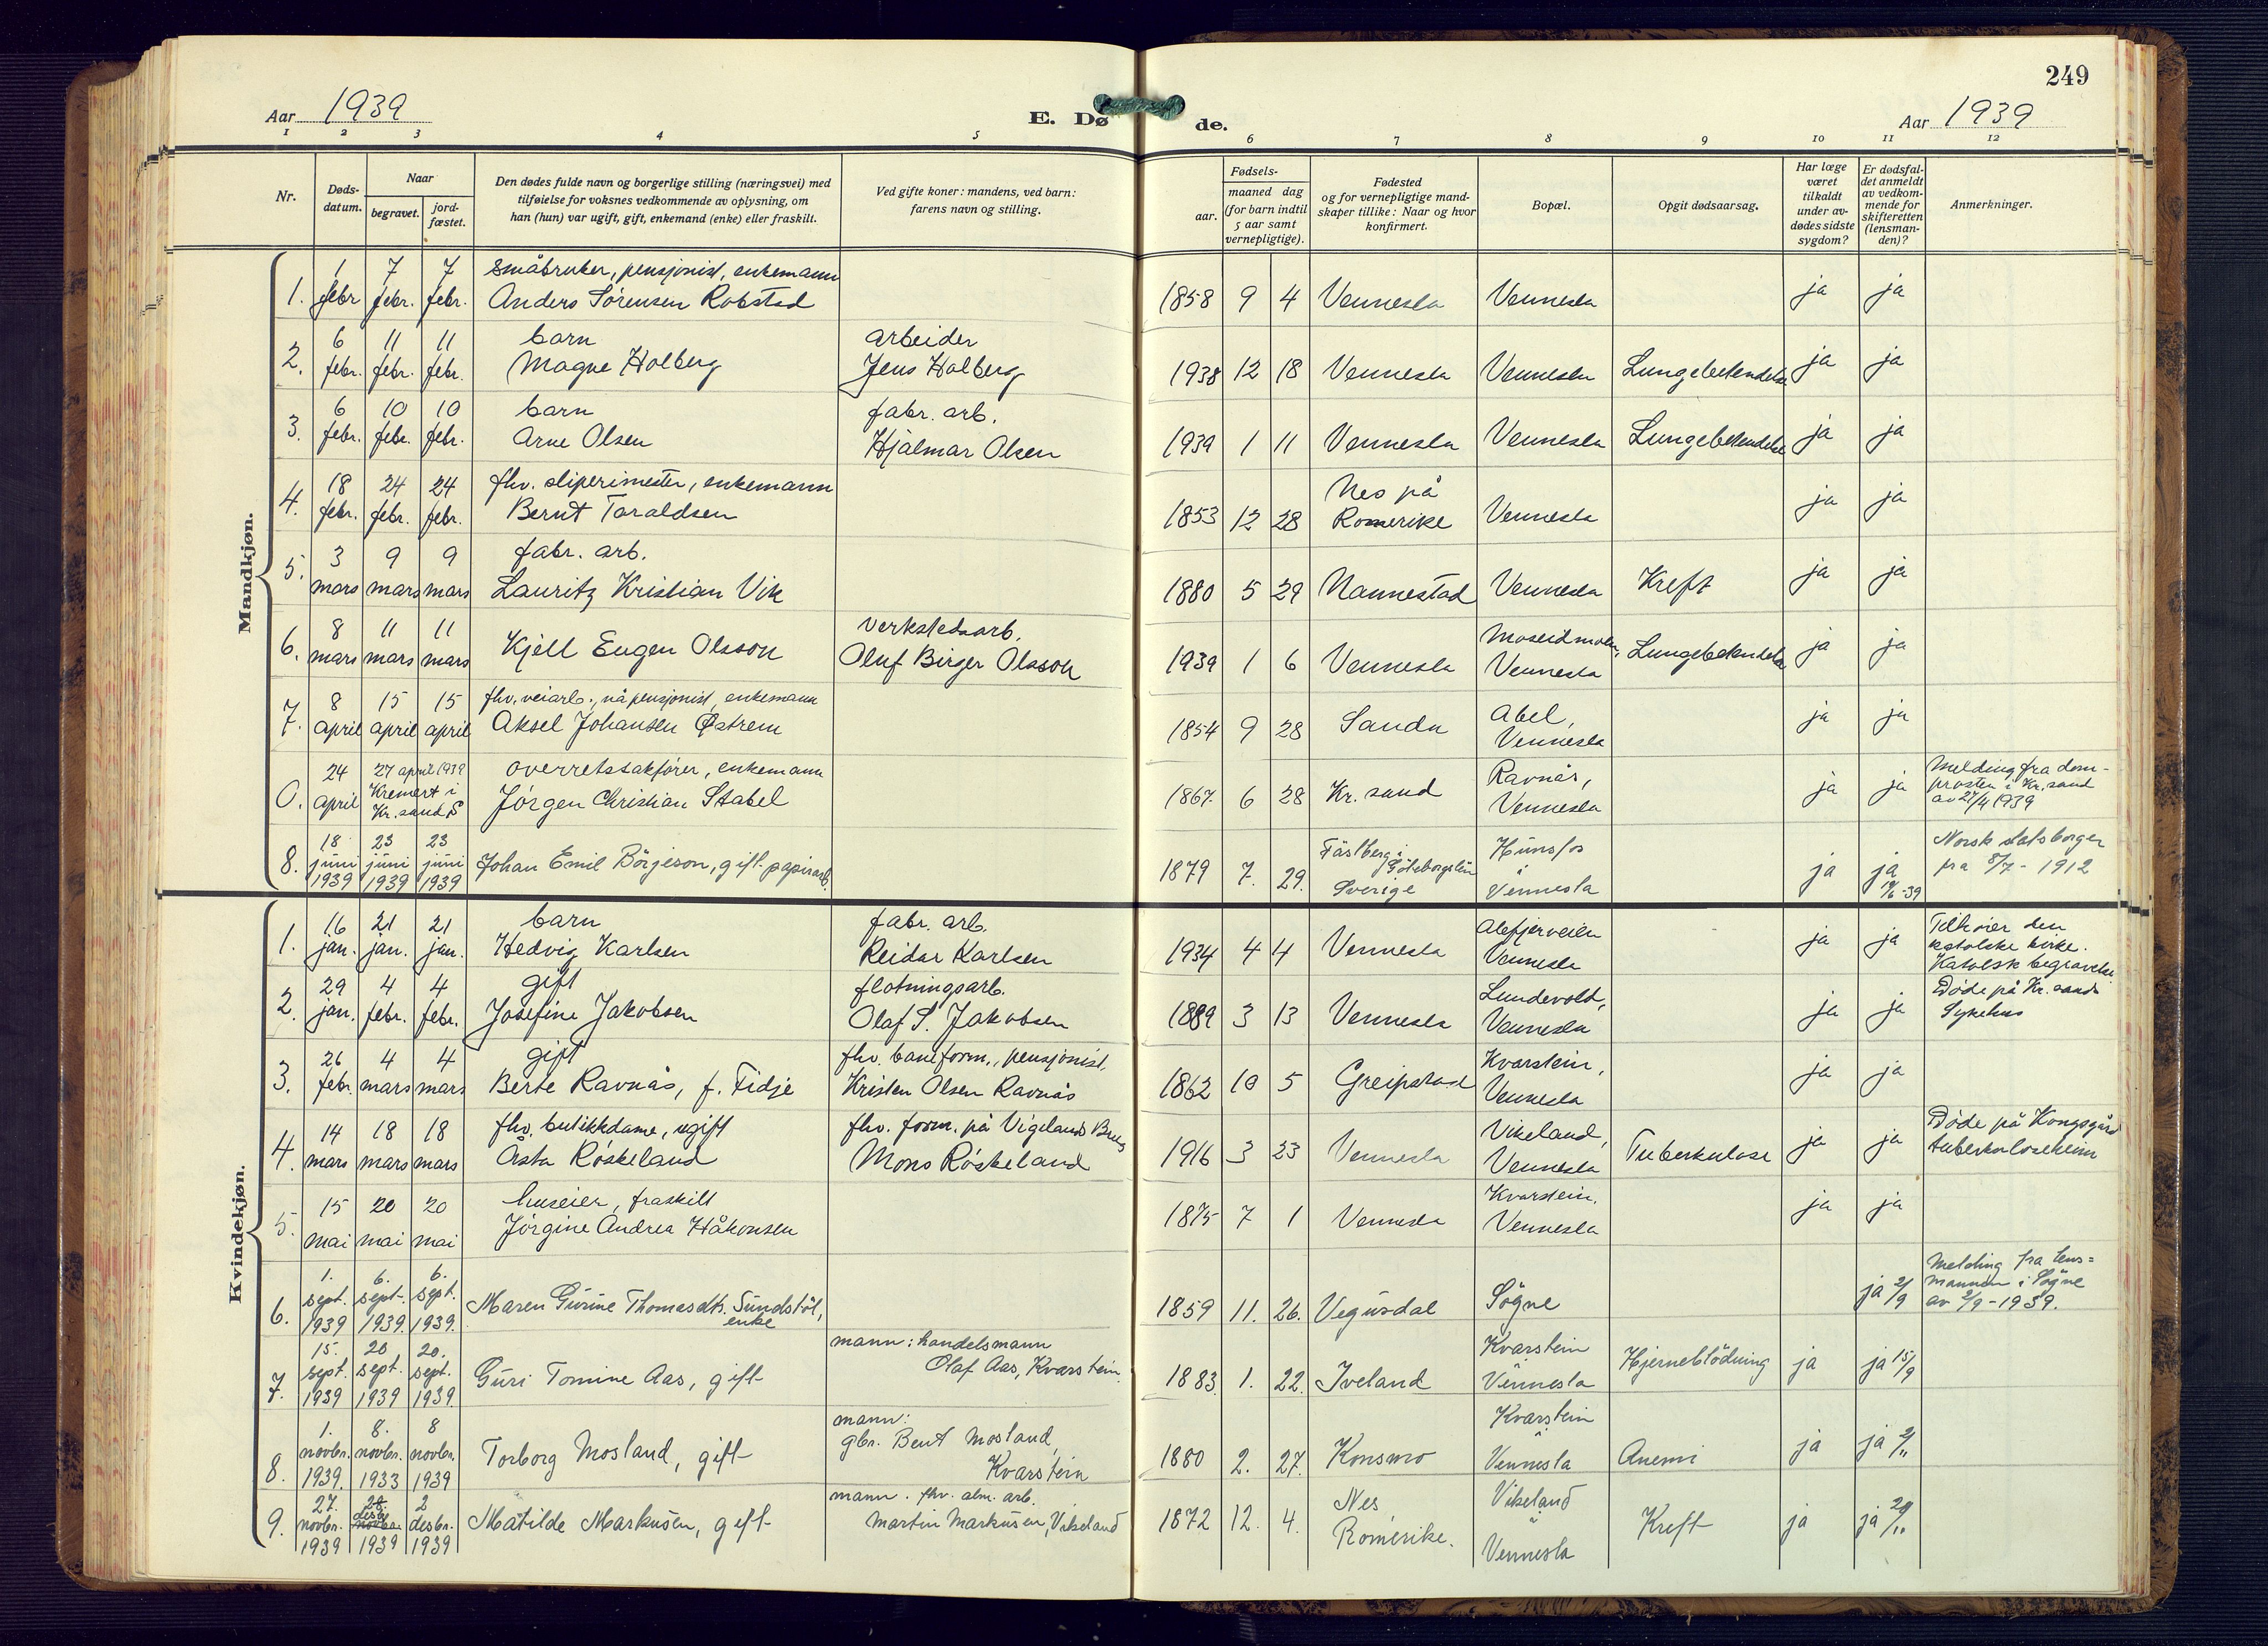 249
Aar 1939
E. Dø de.
Aar 1939
1 2 3 4 5 6 7 8 9 10 11 12
Nr.
Døds-
datum.
Naar
begravet.
jord-
fæstet.
Den dødes fulde navn og borgerlige stilling (næringsvei) med
tilføielse for voksnes vedkommende av oplysning, om
han (hun) var ugift, gift, enkemand (enke) eller fraskilt.
Ved gifte koner: mandens, ved barn:
farens navn og stilling.
Fødsels-
aar.
maaned dag
(for barn indtil
5 aar samt
vernepligtige).
Fødested
og for vernepligtige mand-
skaper tillike: Naar og hvor
konfirmert.
Bopæl.
Opgit dødsaarsag.
Har læge
været
tilkaldt
under av-
dødes sidste
sygdom?
Er dødsfal-
det anmeldt
av vedkom-
mende for
skifteretten
(lensman-
den)?
Anmerkninger.
Mandkjøn.
1. 1 febr 7 febr. 7 febr.
småbruker, pensjonist, enkemann
Anders Sørensen Robstad
1858 9 4 Vennesla Vennesla ja ja
2. 6 febr. 11 febr. 11 febr.
barn
Magne Holberg
arbeider
Jens Holberg
1938 12 18 Vennesla Vennesla Lungebetendelse ja ja
3. 6 febr. 10 febr. 10 febr.
barn
Arne Olsen
fabr. arb.
Hjalmar Olsen
1939 1 11 Vennesla Vennesla Lungebetendelse ja ja
4. 18 febr. 24 febr. 24 febr.
fhv. sliperimester, enkemann
Bernt Taraldsen
1853 12 28 Nes på
Romerike Vennesla ja ja
5. 3 mars 9 mars 9 mars
fabr. arb.
Lauritz Kristian Vik
1880 5 29 Nannestad Vennesla Kreft ja ja
6. 8 mars 11 mars 11 mars
Kjell Eugen Olsson
verkstedsarb.
Oluf Birger Olsson
1939 1 6 Vennesla Moseidmoen,
Vennesla Lungebetendelse ja ja
7. 8 april 15 april 15 april
fhv. veiarb., nå pensjonist, enkemann
Aksel Johansen Østrem
1854 9 28 Sandn Abel,
Vennesla ja ja
0. 24 april 27 april 1939
Kremert i
Kr.sand S
overretssakfører, enkemann
Jørgen Christian Stabel
1867 6 28 Kr. sand Ravnås,
Vennesla ja ja
Melding fra dom-
prosten i Kr.sand
av 27/4 1939
8. 18 juni 1939 23 juni 1939 23 juni 1939
Johan Emil Börjeson, gift papirarb.
1879 7. 29. Fästberg i
Göteborgslän
Sverige
Hunsfos
i
Vennesla ja ja
19/6-39
Norsk statsborger
fra 8/7 - 1912
Kvindekjøn.
1. 16 jan. 21 jan. 21 jan.
barn
Hedvig Karlsen
fabr. arb.
Reidar Karlsen
1934 4 4 Vennesla
Vennesla ja ja
Tilhører den
katolske kirke.
Katolsk begravelse
2. 29 jan. 4 febr. 4 febr.
gift
Josefine Jakobsen
flotningsarb.
Olaf S. Jakobsen
1889 3 13 Vennesla Lundevold,
Vennesla ja ja
Døde på Kr. sands
Sykehus
3. 26 febr. 4 mars 4 mars
gift
Berte Ravnås, f. Fidje
fhv. baneform., pensjonist,
Kristen Olsen Ravnås
1862 10 5 Greipstad Kvarstein,
Vennesla ja ja
4. 14 mars 18 mars 18 mars
fhv. butikkdame, ugift
Åsta Røskeland
fhv. form. på Vigelands Bruk
Mons Røskeland
1916 3 23 Vennesla Vikeland,
Vennesla Tuberkulose ja ja
Døde på Kongsgård
tuberkuloseheim
5. 15 mai 20 mai 20 mai
huseier, fraskilt
Jørgine Andrea Håkonsen
1875 7 1 Vennesla Kvarstein,
Vennesla ja ja
6. 1. sept. 1939 6. sept. 1939. 6. sept. 1939.
Maren Gurine Thomasdtr. Sundstöl,
enke
1859 11. 26. Vegusdal Søgne ja 2/9
Melding fra lens=
mannen i Søgne
av 2/9 - 1939.
7. 15. sept. 1939 20 sept. 1939 20. sept. 1939.
Guri Tomine Aas, gift
mann: handelsmann
Olaf Aas, Kvarstein
1883. 1. 22. Iveland Kvarstein
Vennesla Hjerneblödning ja ja 15/9
8. 1. novbr. 1939. 8. novbr. 1933 8 novbr. 1939
Torborg Mosland, gift
mann:
gbr. Bent Mosland,
Kvarstein
1880 2. 27. Konsmo Kvarstein
Vennesla Anemi ja ja 2/11
9. 27. novbr. 1939 2 desbr. 1939 2 desbr. 1939
Matilde Markusen, gift
mann. fhv. alm. arb.
Martin Markusen, Vikeland
1872 12. 4. Nes,
Romerike. Vikeland
Vennesla Kreft ja ja 29/11